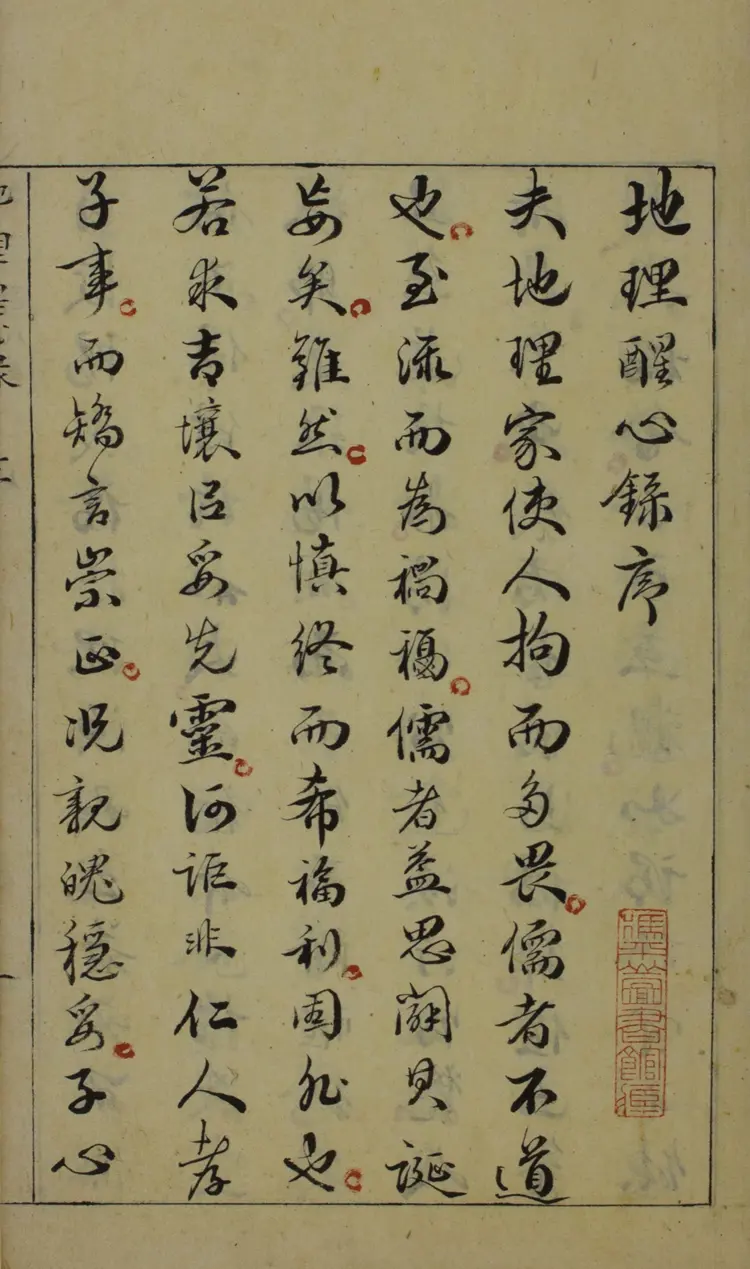 地理醒心錄序
夫地理家使人拘而多畏儒者不道
也至流而為禍福儒者益思闢其誕
妄矣雖然以慎終而希福利固非也
若求吉壤㠯妥先靈何詎非仁人孝
子事而矯言崇正況親魄穩妥子心